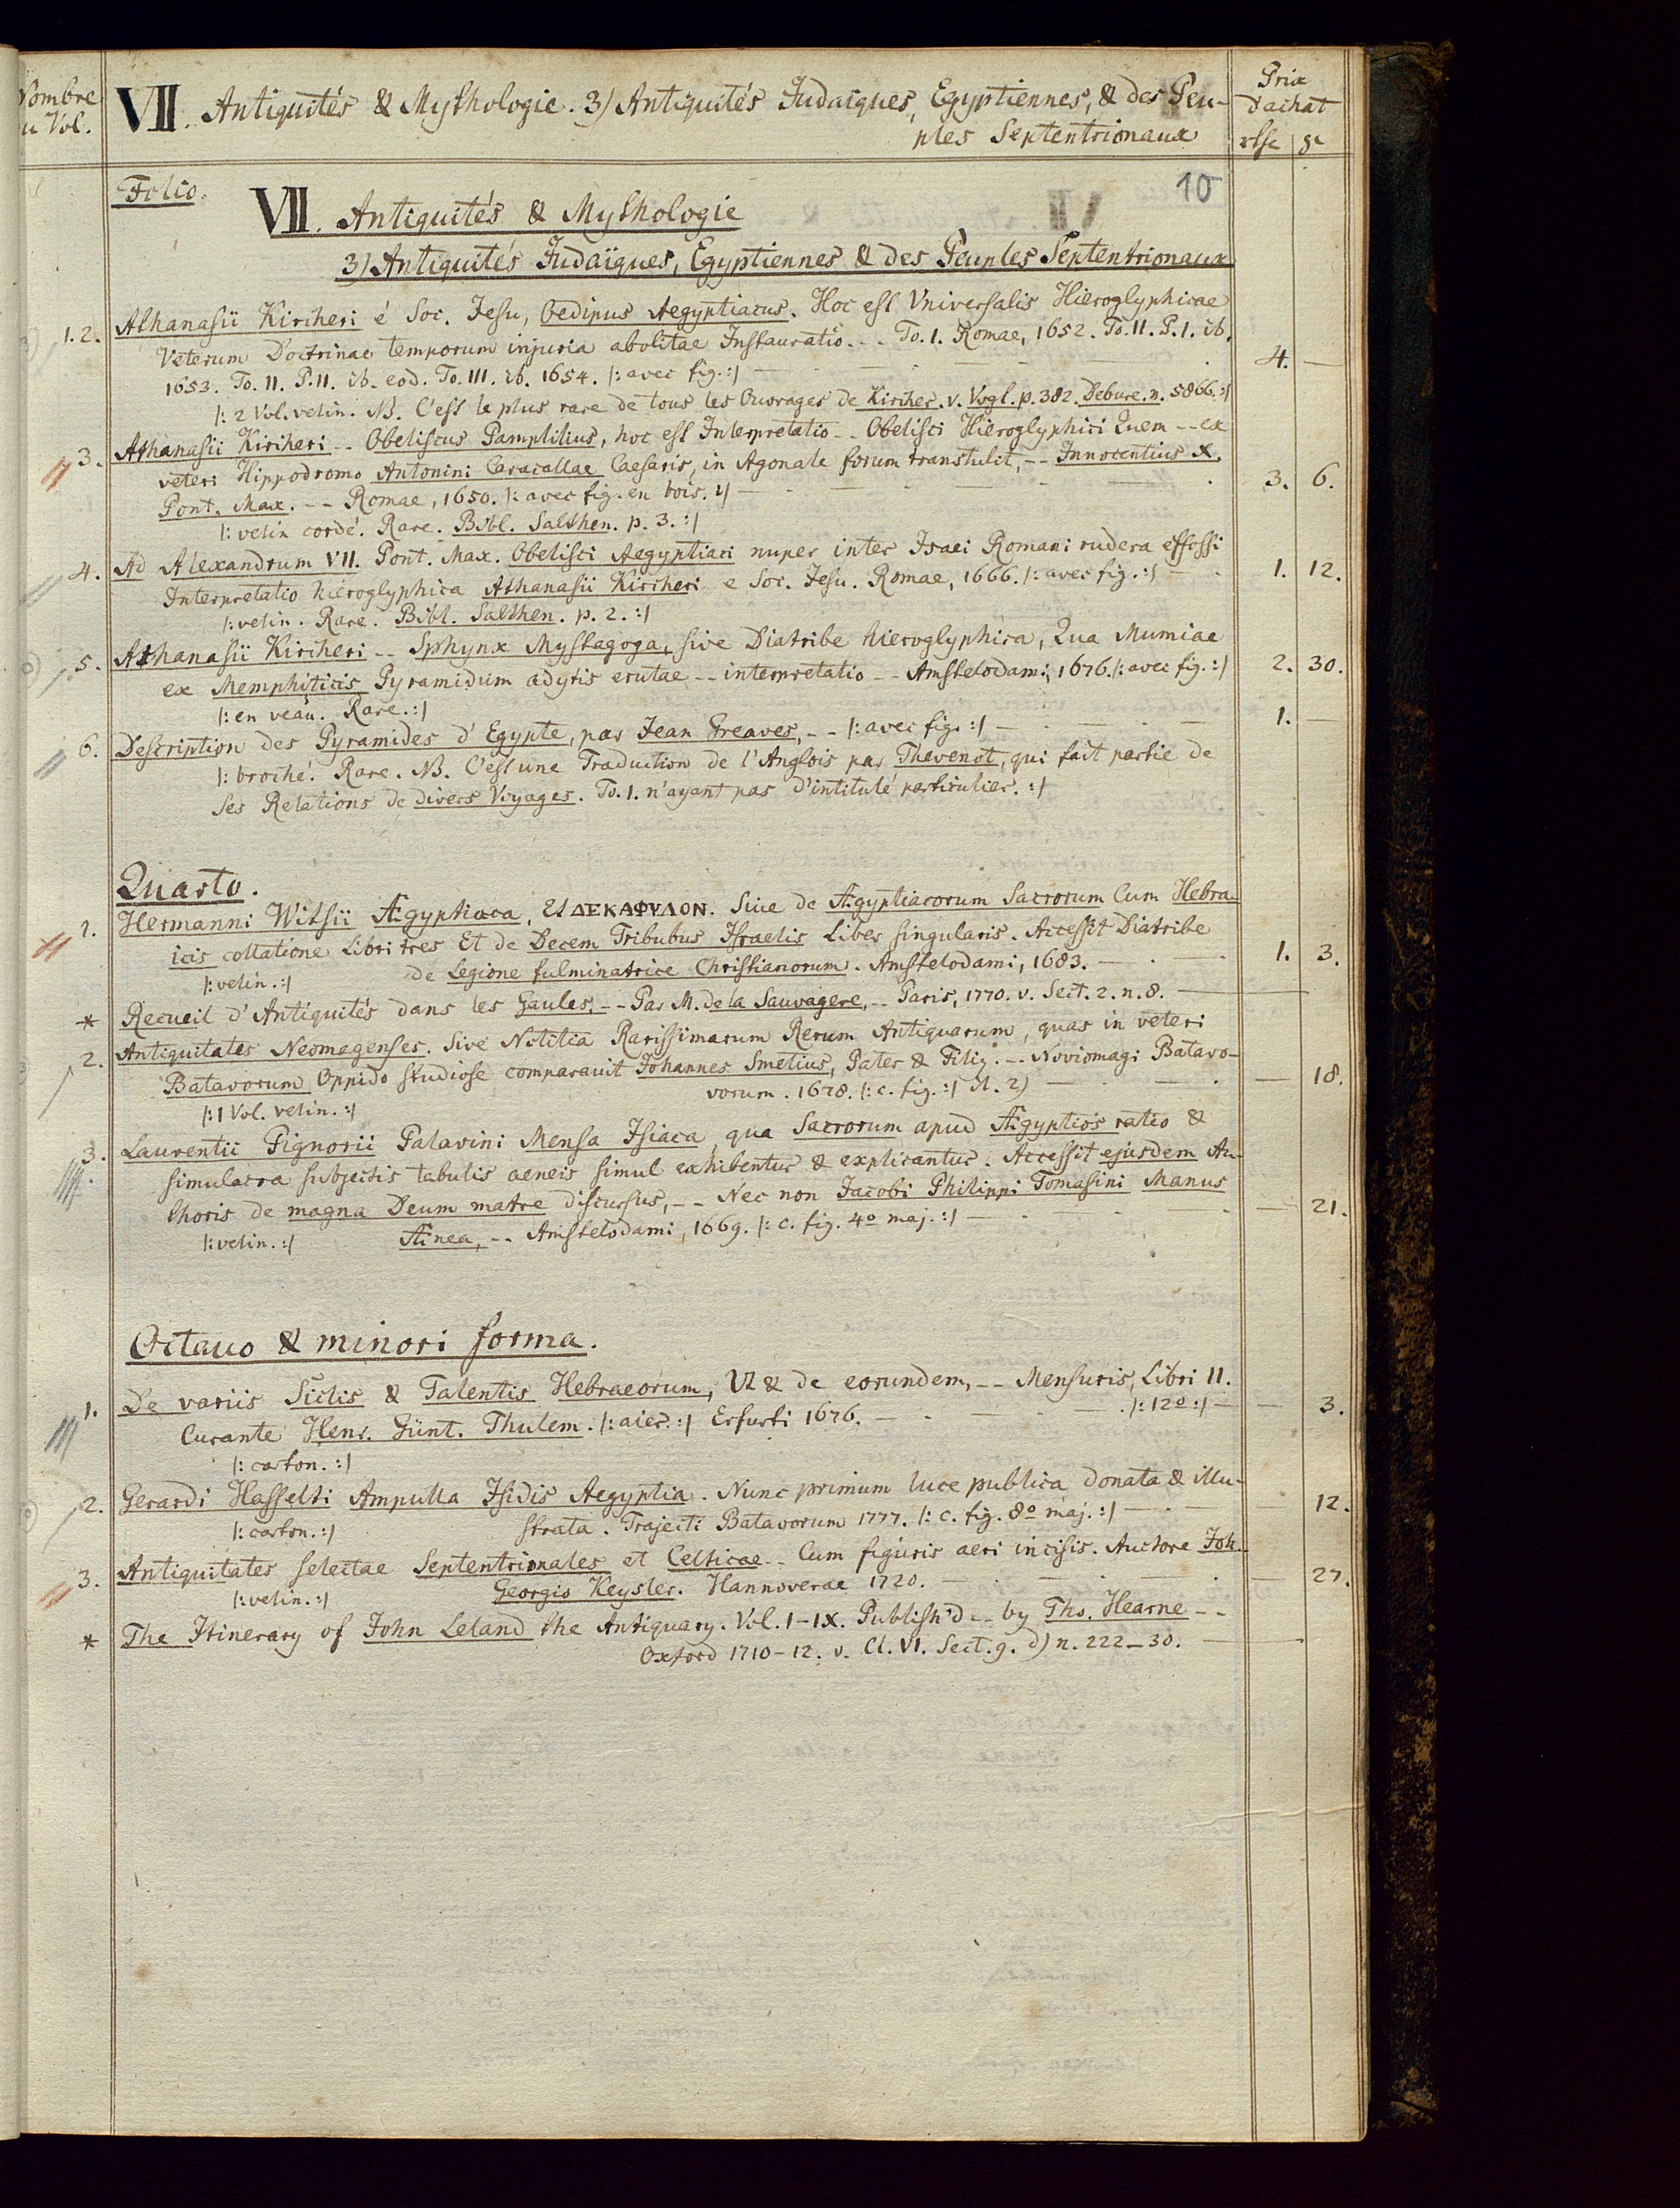 Nombre
du Vol.
VII. Antiquités & Mythologie. 3) Antiquités Judaïques, Egyptiennes, & des Peu-
ples Septentrionaux
Prix
d'achat
rthr | gr
10
Folio.
VII. Antiquités & Mythologie
3) Antiquités Judaïques, Egyptiennes & des Peuples Septentrionaux
1. 2. Athanasii Kircheri é Soc. Jesu, Oedipus Aegyptiacus. Hoc est Vniversalis Hieroglyphicae
Veterum Doctrinae temporum injuria abolitae Instauratio. -- To. I. Romae, 1652. To. II. P. I. ib.
1653. To. II. P. II. ib. eod. To. III. ib. 1654. /: avec fig. :/ — 4. —
/: 2 Vol. velin. NB. C'est le plus rare de tous les Ouvrages de Kircher. v. Vogl. p. 382. Debure. n. 5866. :/
3. Athanasii Kircheri -- Obeliscus Pamphilius, hoc est Interpretatio -- Obelisci Hieroglyphici Quem -- ex
veteri Hippodromo Antonini Caracallae Caesaris, in Agonale forum transtulit, -- Innocentius X.
Pont. Max. -- Romae, 1650. /: avec fig. en bois. :/ — 3. 6.
/: velin cordé. Rare. Bibl. Salthen. p. 3. :/
4. Ad Alexandrum VII. Pont. Max. Obelisci Aegyptiaci nuper inter Isaei Romani rudera effossi
Interpretatio hieroglyphica Athanasii Kircheri e Soc. Jesu. Romae, 1666. /: avec fig. :/ — 1. 12.
/: velin. Rare. Bibl. Salthen. p. 2. :/
5. Athanasii Kircheri -- Sphynx Mystagoga, sive Diatribe hieroglyphica, Qua Mumiae
ex Memphiticis Pyramidum adytis erutae -- interpretatio -- Amstelodami, 1676. /: avec fig. :/ 2. 30.
/: en veau. Rare. :/
6. Description des Pyramides d'Egypte, par Jean Greaves, -- /: avec fig. :/ — 1. —
/: broché. Rare. NB. C'est une Traduction de l'Anglois par Thevenot, qui fait partie de
ses Relations de divers Voyages. To. I. n'ayant pas d'intitulé particulier. :/
Quarto.
1. Hermanni Witsii Ægyptiaca, Et ΔΕΚΑΦΥΛΟΝ. Siue de Ægyptiacorum Sacrorum Cum Hebra-
icis collatione Libri tres Et de Decem Tribubus Israelis Liber singularis. Accessit Diatribe
/: velin. :/ de Legione fulminatrice Christianorum. Amstelodami, 1683. — 1. 3.
* Recueil d'Antiquités dans les Gaules, -- Par M. de la Sauvagere, -- Paris, 1770. v. Sect. 2. n. 8. —
2. Antiquitates Neomagenses. Sive Notitia Rarissimarum Rerum Antiquarum, quas in veteri
Batavorum Oppido studiose comparavit Johannes Smetius, Pater & Filiq. -- Noviomagi Batavo-
vorum. 1678. /: c. fig. :/ — 18.
/: 1 Vol. velin. :/
3. Laurentii Pignorii Patavini Mensa Isiaca, qua Sacrorum apud Ægyptios ratio &
simulacra subjectis tabulis aeneis simul exhibentur & explicantur. Accessit ejusdem Au-
thoris de magna Deum matre discursus, -- Nec non Jacobi Philippi Tomasini Manus
/: velin. :/ Ænea, -- Amstelodami, 1669. /: c. fig. 4º maj. :/ — 21.
Octauo & minori forma.
1. De variis Siclis & Talentis Hebraeorum, Ut & de eorundem, -- Mensuris, Libri II.
Curante Henr. Günt. Thulem. /: aier. :/ Erfurti 1676. — /: 12º :/ — 3.
/: carton. :/
2. Gerardi Hasselti Ampulla Isidis Aegyptia. Nunc primum luce publica donata & illu-
/: carton. :/ strata. Trajecti Batavorum 1777. /: c. fig. 8º maj. :/ — 12.
3. Antiquitates selectae Septentrionales et Celticae -- Cum figuris aeri incisis. Auctore Joh.
/: velin. :/ Georgio Keysler. Hannoverae 1720. — 27.
* The Itinerary of John Leland the Antiquary. Vol. I-IX. Publish'd -- by Tho. Hearne --
Oxford 1710-12. v. Cl. VI. Sect. 9. d) n. 222-30. —